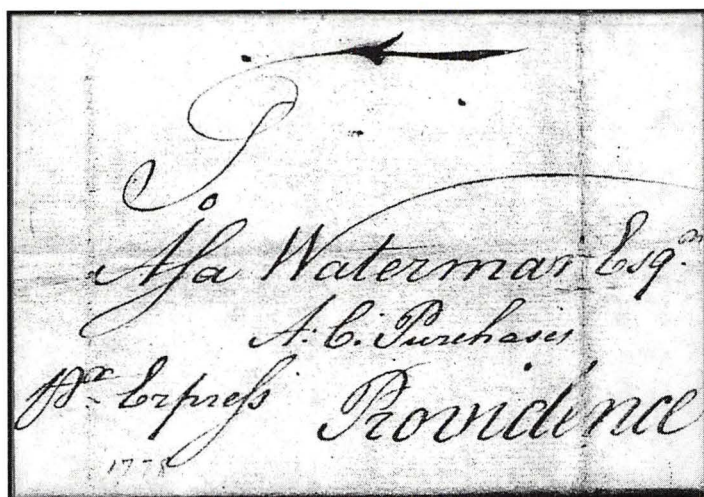 To
Asa Waterman Esqr.
A. C. Purchases
Pr. Express Providence
1778